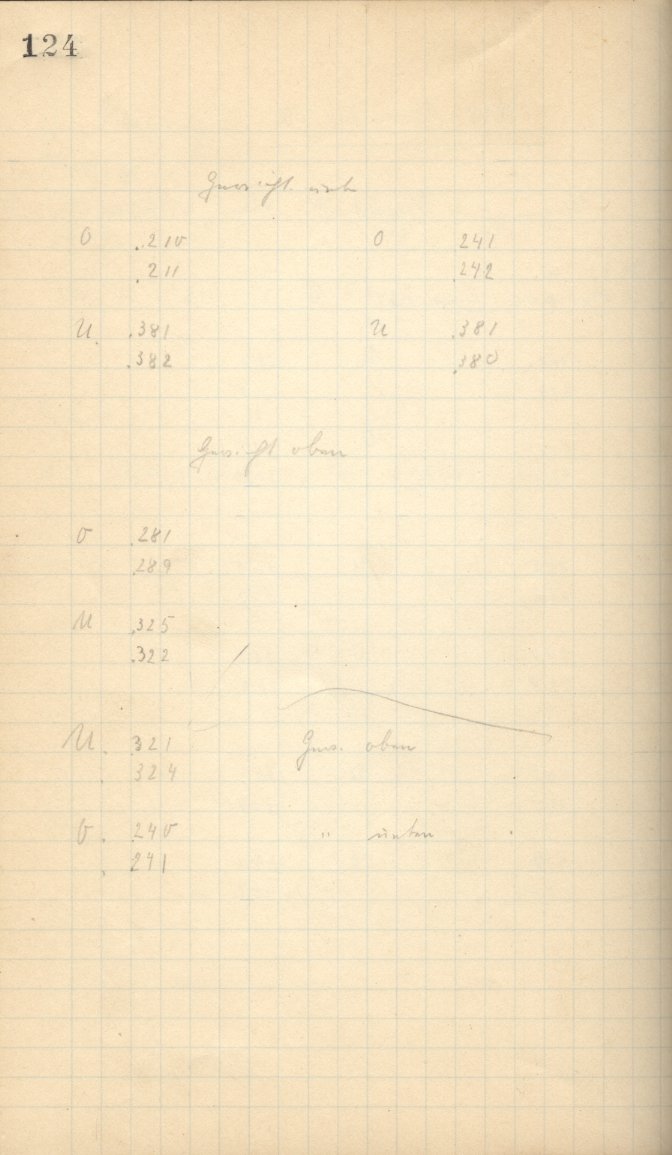 124
Gewicht unten
O .210 O 241
.211 .242
U. .381 U .381
.382 .380
Gewicht oben
O .281
.289
U .325
.322
U. .321 Gew. oben
.324
O. .240 " unten
.241